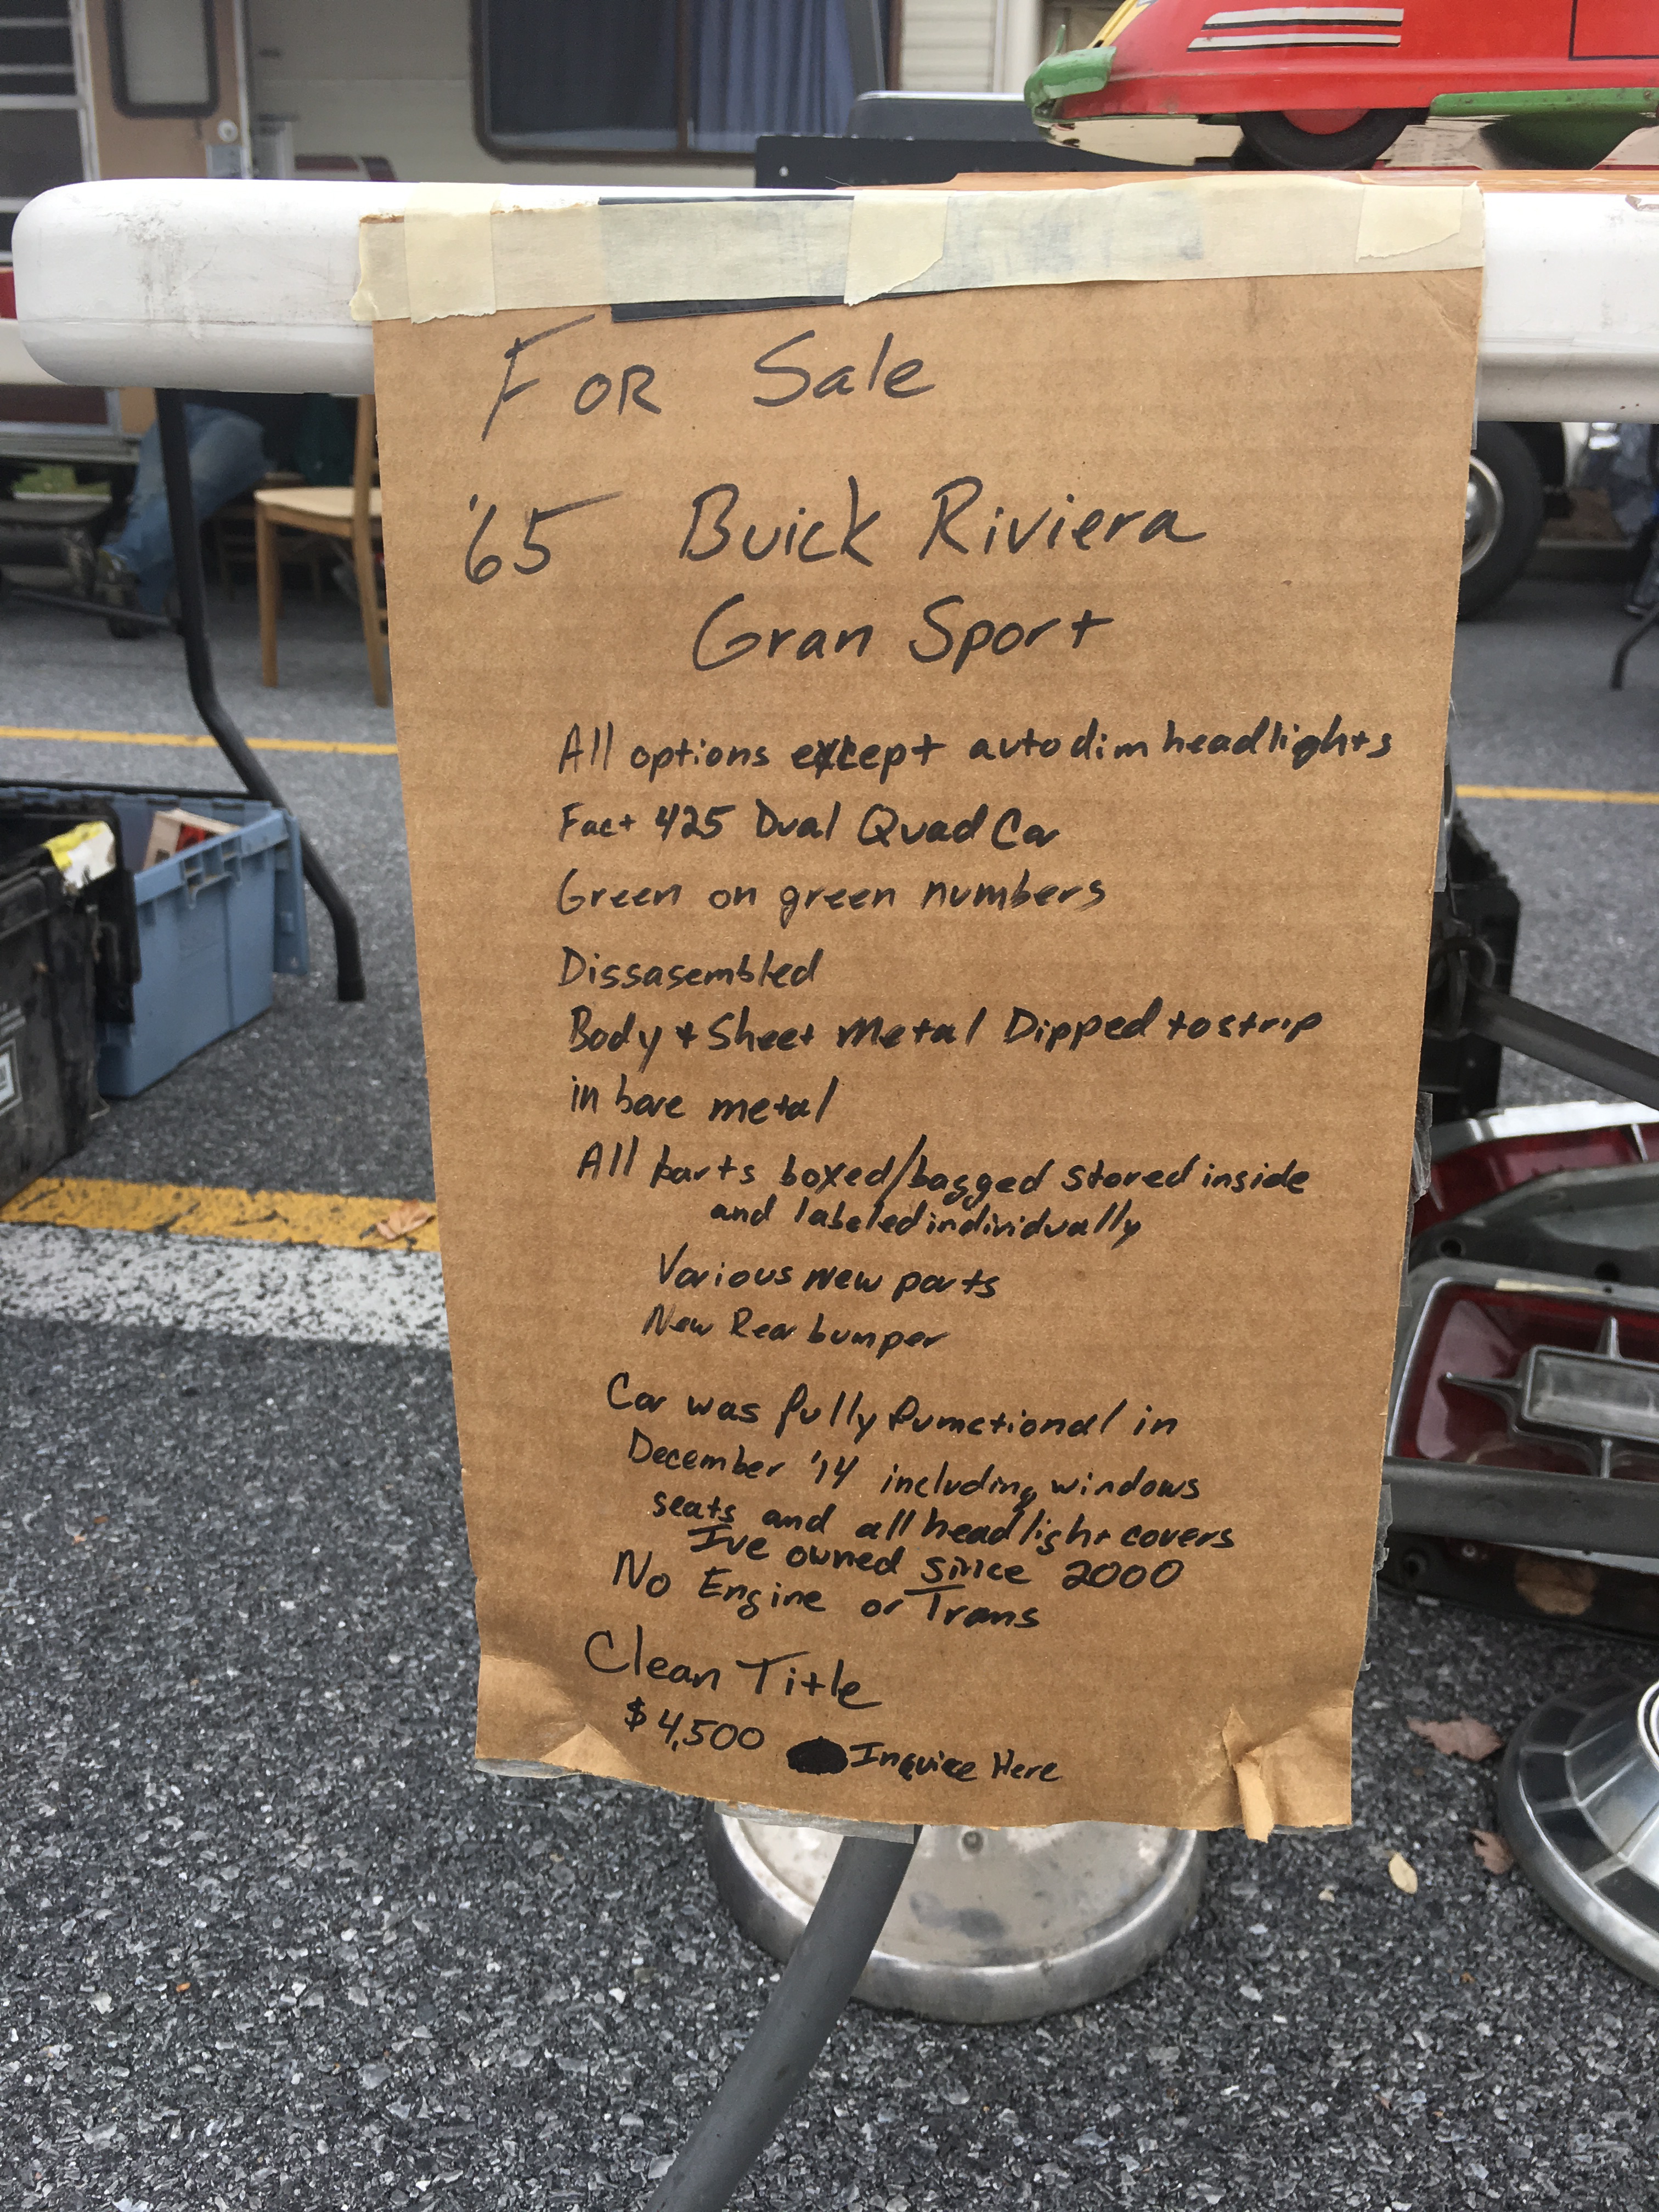 For Sale
'65 Buick Riviera
Gran Sport
All options except autodim headlights
Fact 425 Dual Quad Car
Green on green numbers
Dissasembled
Body + Sheet Metal Dipped to strip
in bare metal
All parts boxed/bagged stored inside
and labeled individually
Various new parts
New Rear bumper
Car was fully fumctional in
December '14 including windows
seats and all headlight covers
I've owned since 2000
No Engine or Trans
Clean Title
$4,500 Inquire Here